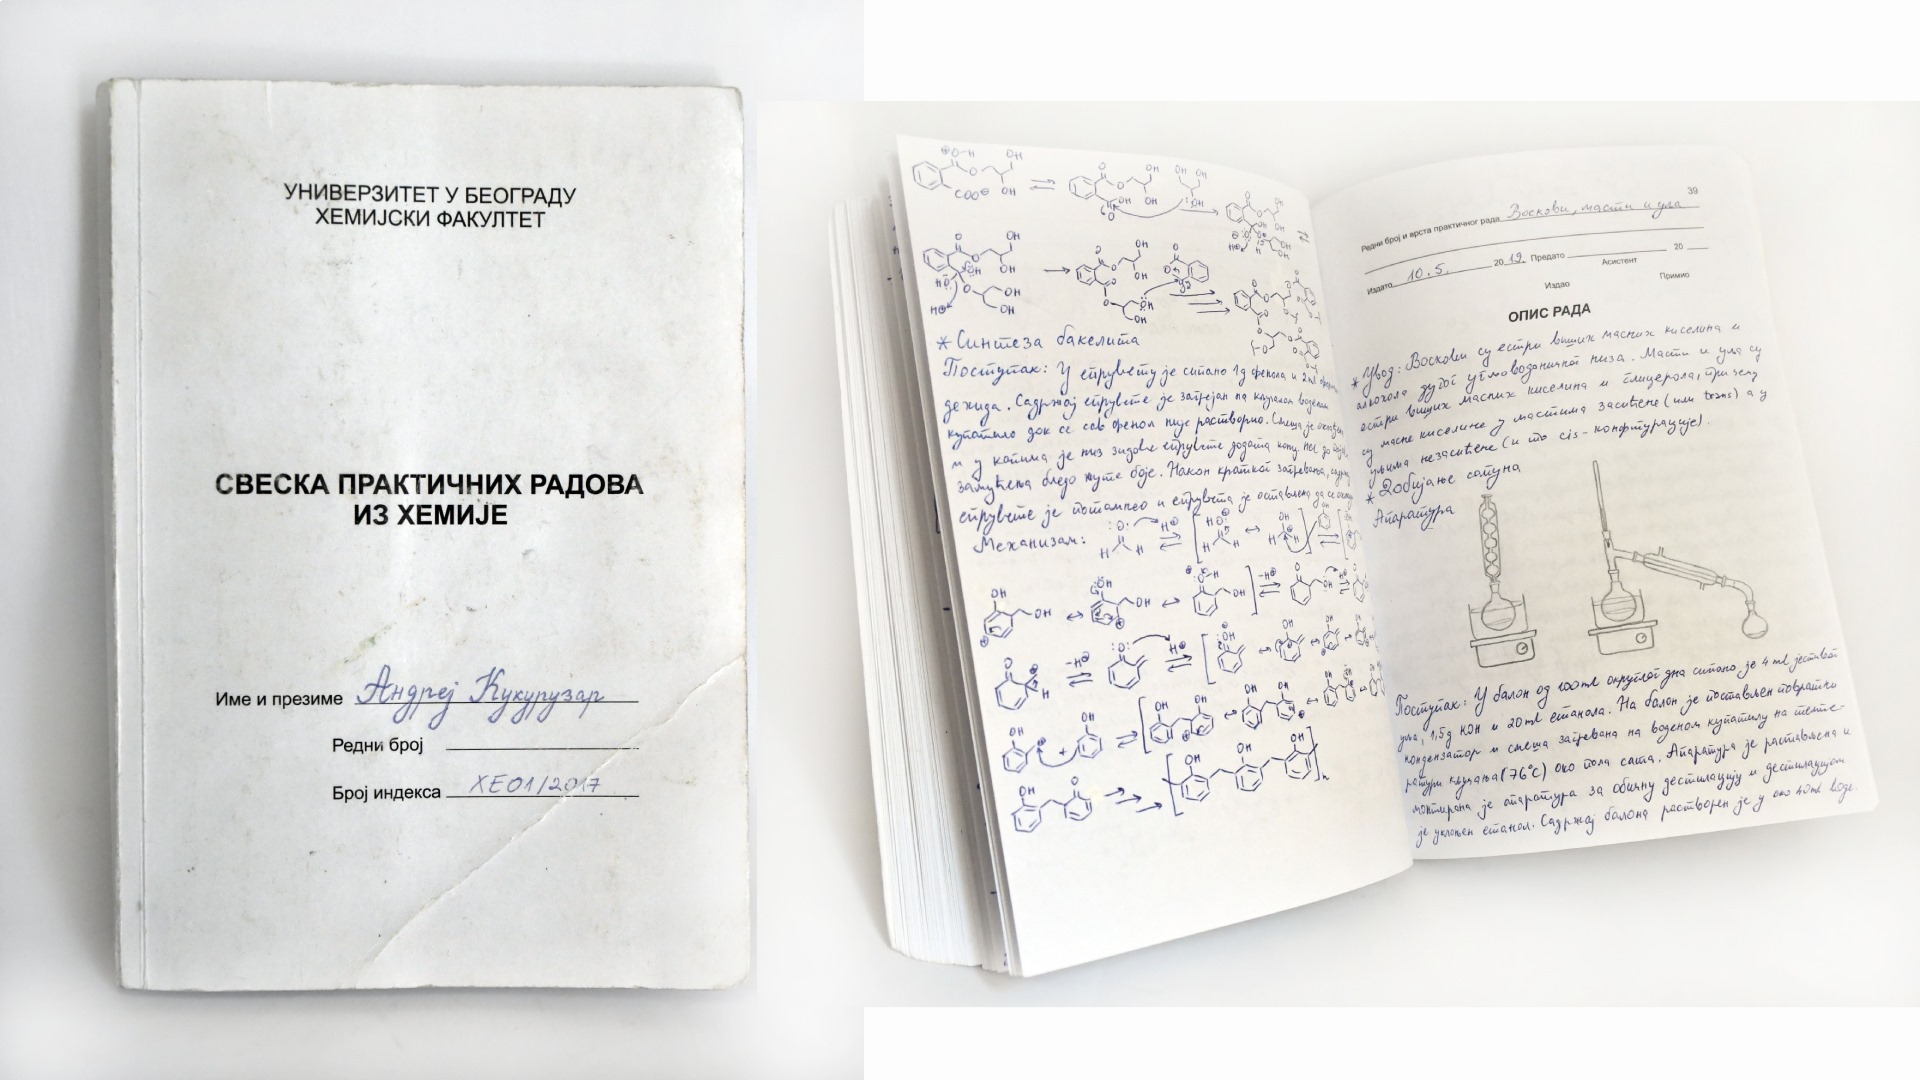 УНИВЕРЗИТЕТ У БЕОГРАДУ
ХЕМИЈСКИ ФАКУЛТЕТ
СВЕСКА ПРАКТИЧНИХ РАДОВА
ИЗ ХЕМИЈЕ
Име и презиме Андреј Кукурузар
Редни број
Број индекса ХЕ01/2017
* Синтеза бакелита
Поступак: У епрувету је сипано 1g фенола и 2ml
дехида. Садржај епрувете је загрејан на кључалом воденом
купатилу док се сав фенол није растворио. Смеша је
и у капима је низ зидове епрувете додата конц. HCl до
замућења бледо жуте боје. Након краткот загревања,
епрувете је потамнео и епрувета је остављена да се
Механизам:
39
Редни број и врста практичног рада Воскови, масти и уља
Издато 10.5. 2019. Предато 20
Асистент
Издао
Примио
ОПИС РАДА
* Увод: Воскови су естри виших масних киселина и
алкохола дугог угљоводоничног низа. Масти и уља су
естри виших масних киселина и глицерола, при чему
су масне киселине у мастима засићене (или trans) а у
уљима незасићене (и то cis-конфигурације).
* Добијање сапуна
Апаратура
Поступак: У балон од 100ml округлог дна сипано је 4 ml јестивог
уља, 1,5g KOH и 20ml етанола. На балон је постављен повратни
кондензатор и смеша загревана на воденом купатилу на темпе-
ратури кључања (76°C) око пола сата. Апаратура је растављена и
монтирана је апаратура за обичну дестилацију и дестилацијом
је уклоњен етанол. Садржај балона растворен је у око 40ml воде.